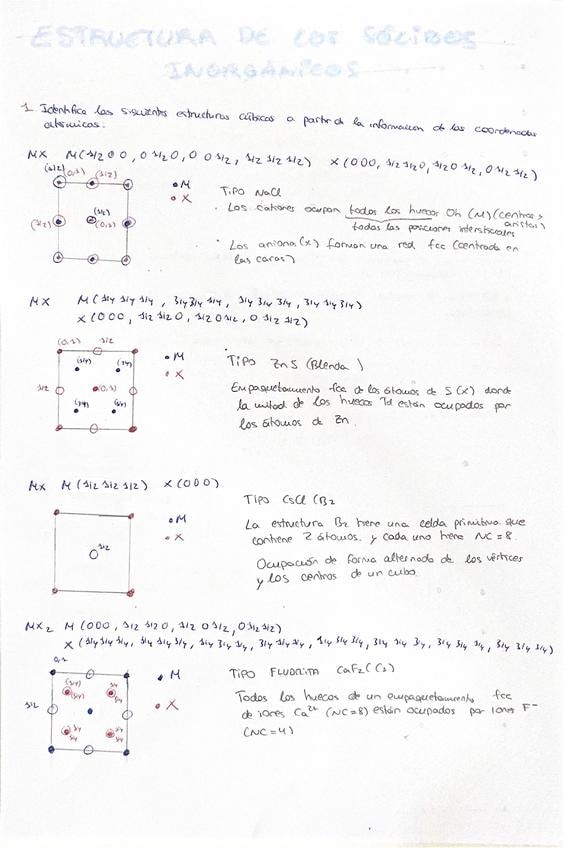 ESTRUCTURA DE LOS SÓLIDOS
INORGÁNICOS
1. Identifica las siguientes estructuras cúbicas a partir de la información de las coordenadas
atómicas.
MX M(1/2 0 0, 0 1/2 0, 0 0 1/2, 1/2 1/2 1/2) X(000, 1/2 1/2 0, 1/2 0 1/2, 0 1/2 1/2)
(1/2) (0,1) (1/2)
• M
• X
(1/2) (1/2)
(0,1)
TIPO NaCl
• Los cationes ocupan todos los huecos Oh (M) (centros y
aristas)
todas las posiciones intersticiales
• Los aniones (X) forman una red fcc (centrada en
las caras)
MX M(1/4 1/4 1/4, 3/4 3/4 1/4, 1/4 3/4 3/4, 3/4 1/4 3/4)
X(000, 1/2 1/2 0, 1/2 0 1/2, 0 1/2 1/2)
(0,1) 1/2
(3/4) (1/4)
1/2 (0,1)
(1/4) (3/4)
• M
• X
TIPO ZnS (Blenda)
Empaquetamiento fcc de los átomos de S (X) donde
la mitad de los huecos Td están ocupados por
los átomos de Zn.
MX M(1/2 1/2 1/2) X(000)
1/2
• M
• X
TIPO CsCl (B2
La estructura B2 tiene una celda primitiva que
contiene 2 átomos. y cada uno tiene NC = 8.
Ocupación de forma alternada de los vértices
y los centros de un cubo.
MX2 M(000, 1/2 1/2 0, 1/2 0 1/2, 0 1/2 1/2)
0,1
1/2
• M
• X
TIPO FLUORITA CaF2 (C1)
Todos los huecos de un empaquetamiento fcc
de iones Ca2+ (NC=8) están ocupados por iones F-
(NC=4)